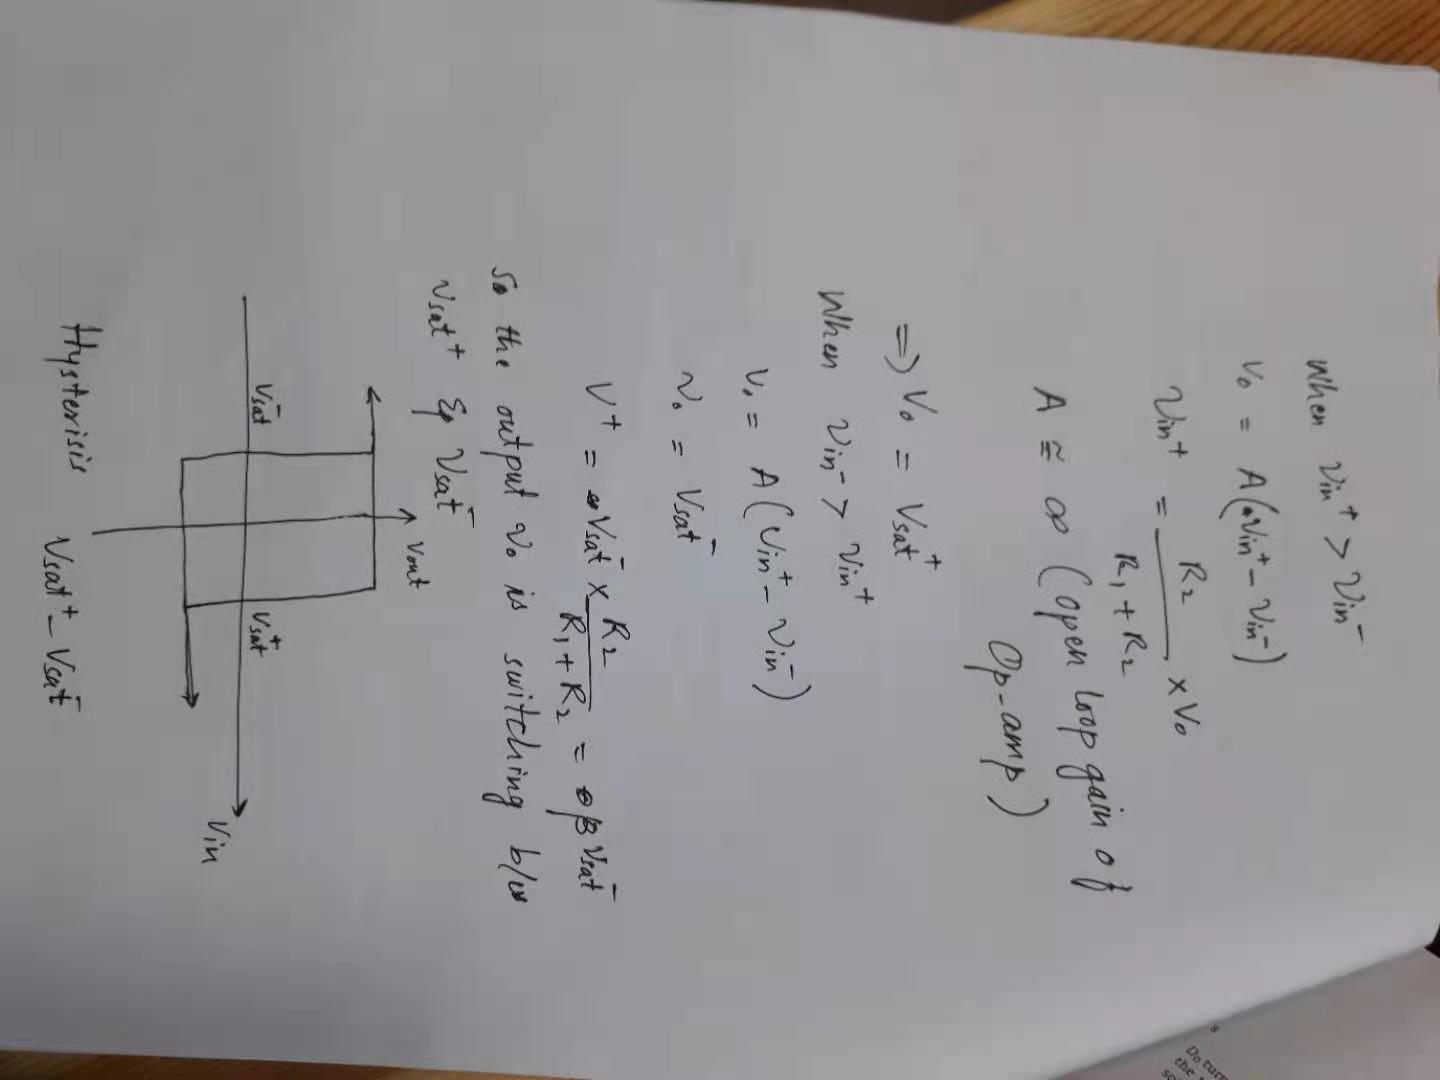 When Vin+ > Vin-
Vo = A(Vin+ - Vin-)
Vin+ = R2 / R1 + R2 × Vo
A ≅ ∞ (open loop gain of
Op-amp)
=) Vo = Vsat+
When Vin- > Vin+
Vo = A(Vin+ - Vin-)
Vo = Vsat-
V+ = Vsat- × R2 / R1 + R2 = β Vsat-
So the output Vo is switching b/w
Vsat+ & Vsat-
Vout
Vsat-
Vsat+
Vin
Hysterisis
Vsat+ - Vsat-
Do turn
the